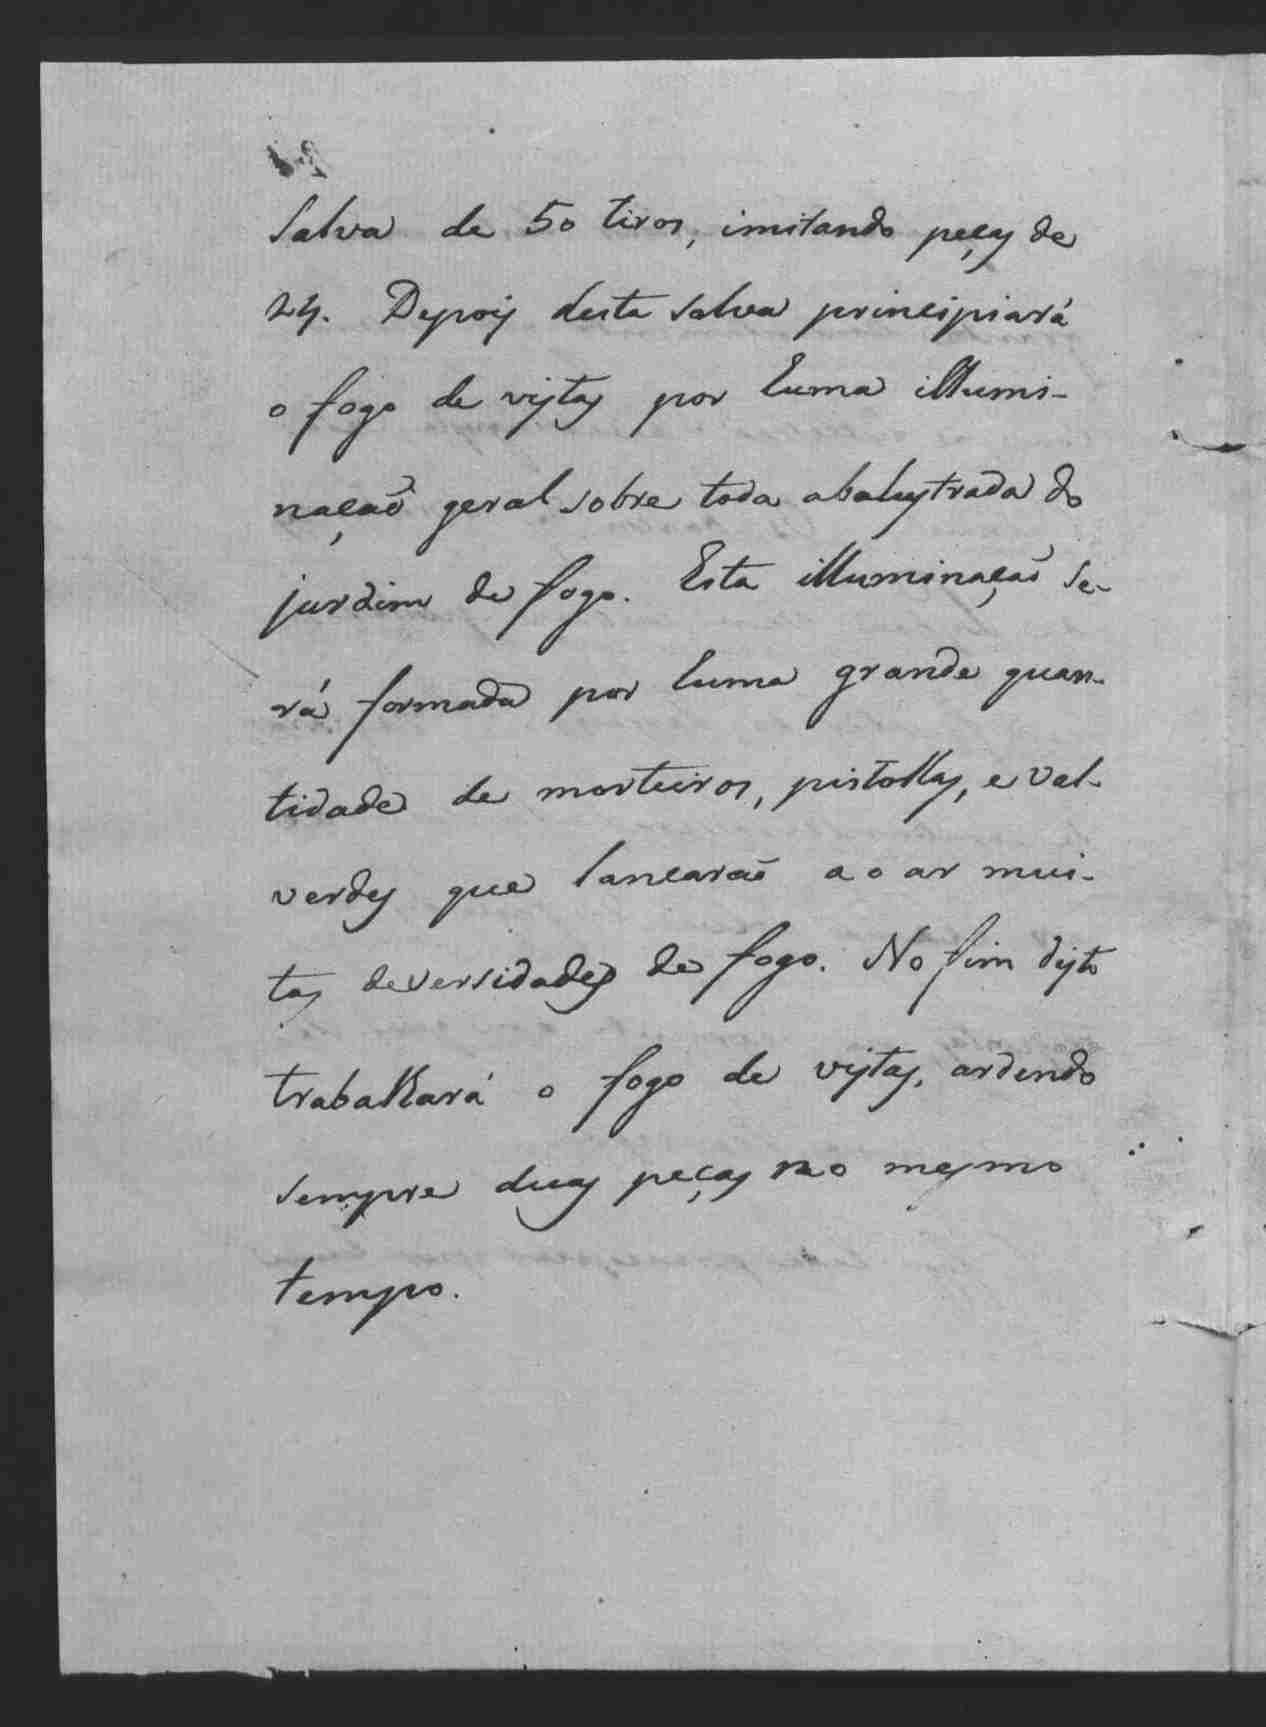 Salva de 50 tiros, imitando peças de
24. Depois desta salva principiará
o fogo de vistas por huma illumi-
nação geral sobre toda abalustrada do
jardim de fogo. Esta illuminação se-
rá formada por huma grande quan-
tidade de morteiros, pistollas, e val-
verdes que lancarão ao ar mui-
tas deversidades de fogo. No fim disto
trabalhará o fogo de vistas, ardendo
sempre duas peças no mesmo
tempo.